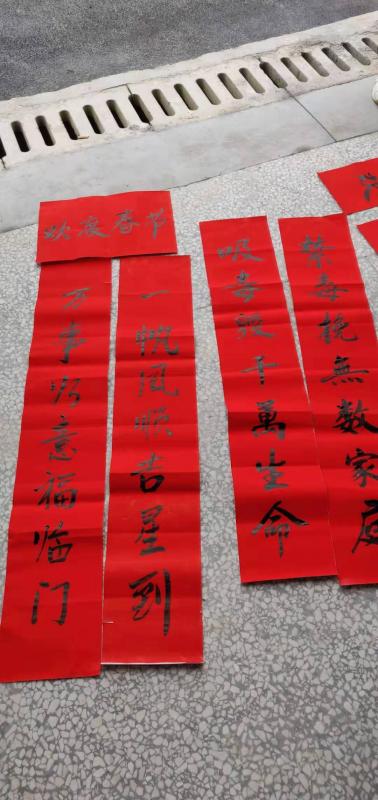 欢度春节
一帆风顺吉星到
万事如意福临门
禁毒挽無数家庭
吸毒毁千萬生命